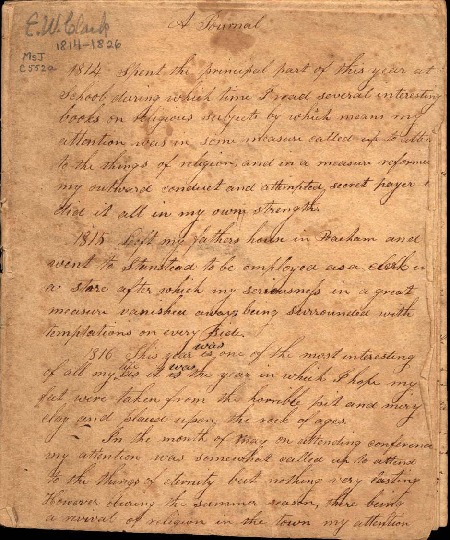 A Journal
E. W. Clark
1814-1826
MsJ
C552a
1814 Spent the principal part of this year at
School, during which time I read several interesting
books on religious subjects by which means my
attention was in some measure called up to
to the things of religion, and in a measure reformed
my outward conduct and attempted secret prayer
did it all in my own strength.
1815 Left my fathers house in Peacham and
went to Stanstead to be employed as a clerk in
a store after which my seriousness in a great
measure vanished away being surrounded with
temptations on every side.
1816 This year is was one of the most interesting
of all my life it is was the year in which I hope my
feet were taken from the horrible pit and mirey
clay and placed upon the rock of ages.
In the month of May on attending conference
my attention was somewhat called up to attend
to the things of eternity but nothing very lasting
However during the summer season, there being
a revival of religion in the town my attention